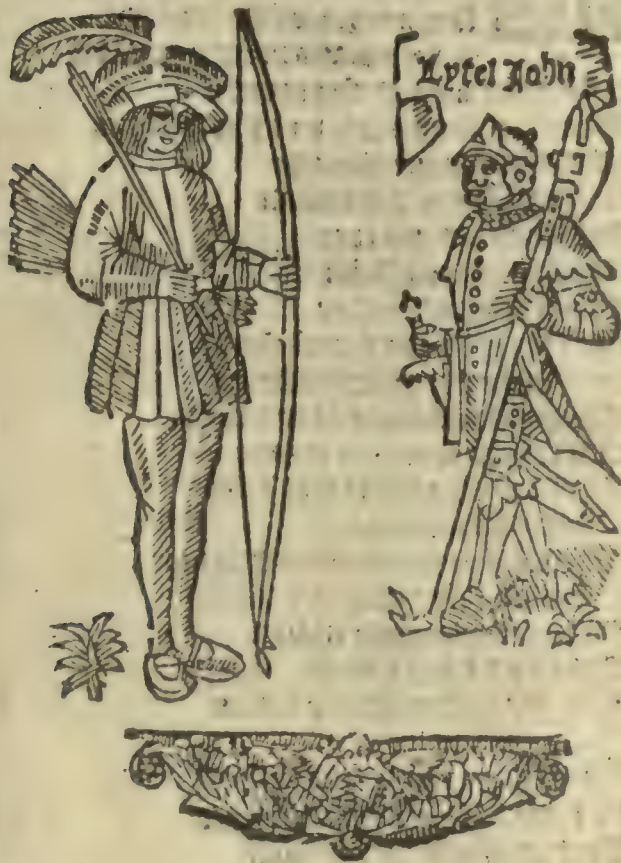 Lytel John